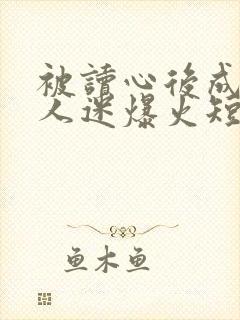 被讀心後成
人迷爆火短
鱼木鱼